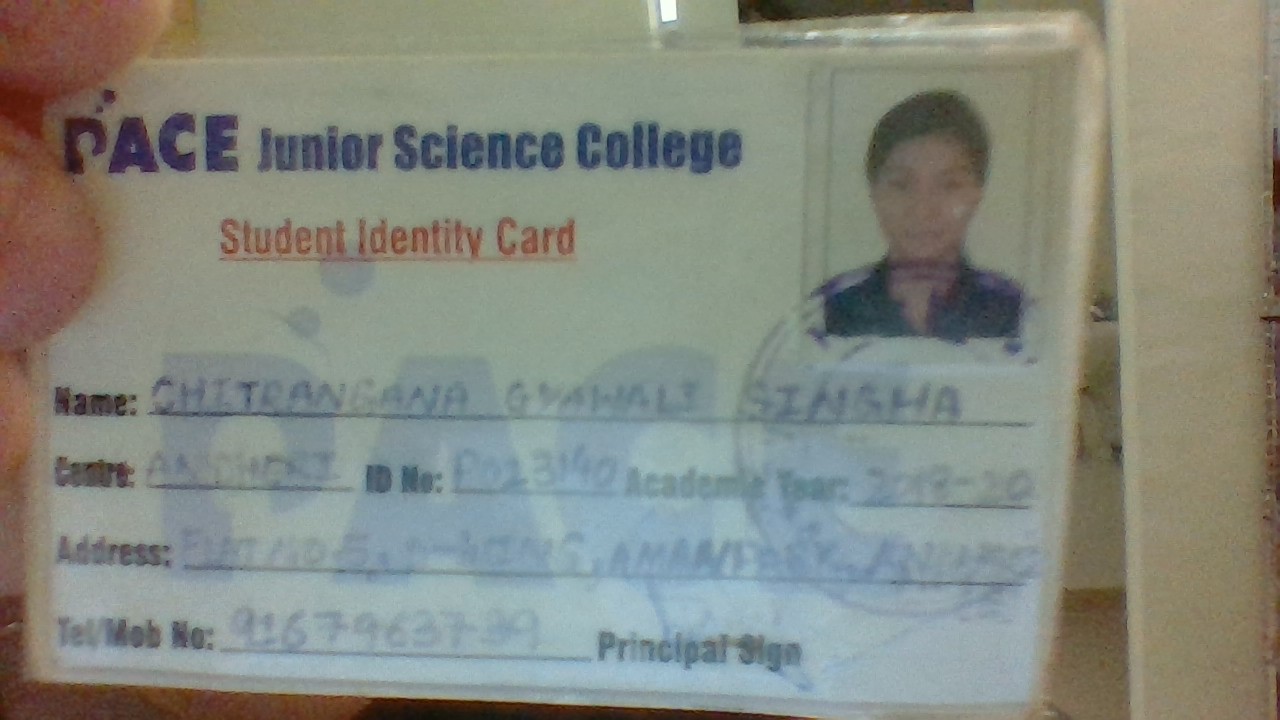 PACE Junior Science College
Student Identity Card
Name: CHITRANGANA GYAWALI SINGHA
Centre: ANDHERI ID No: P023140 Academic Year: 2018-20
Address:
Tel/Mob No: 9167963739 Principal Sign